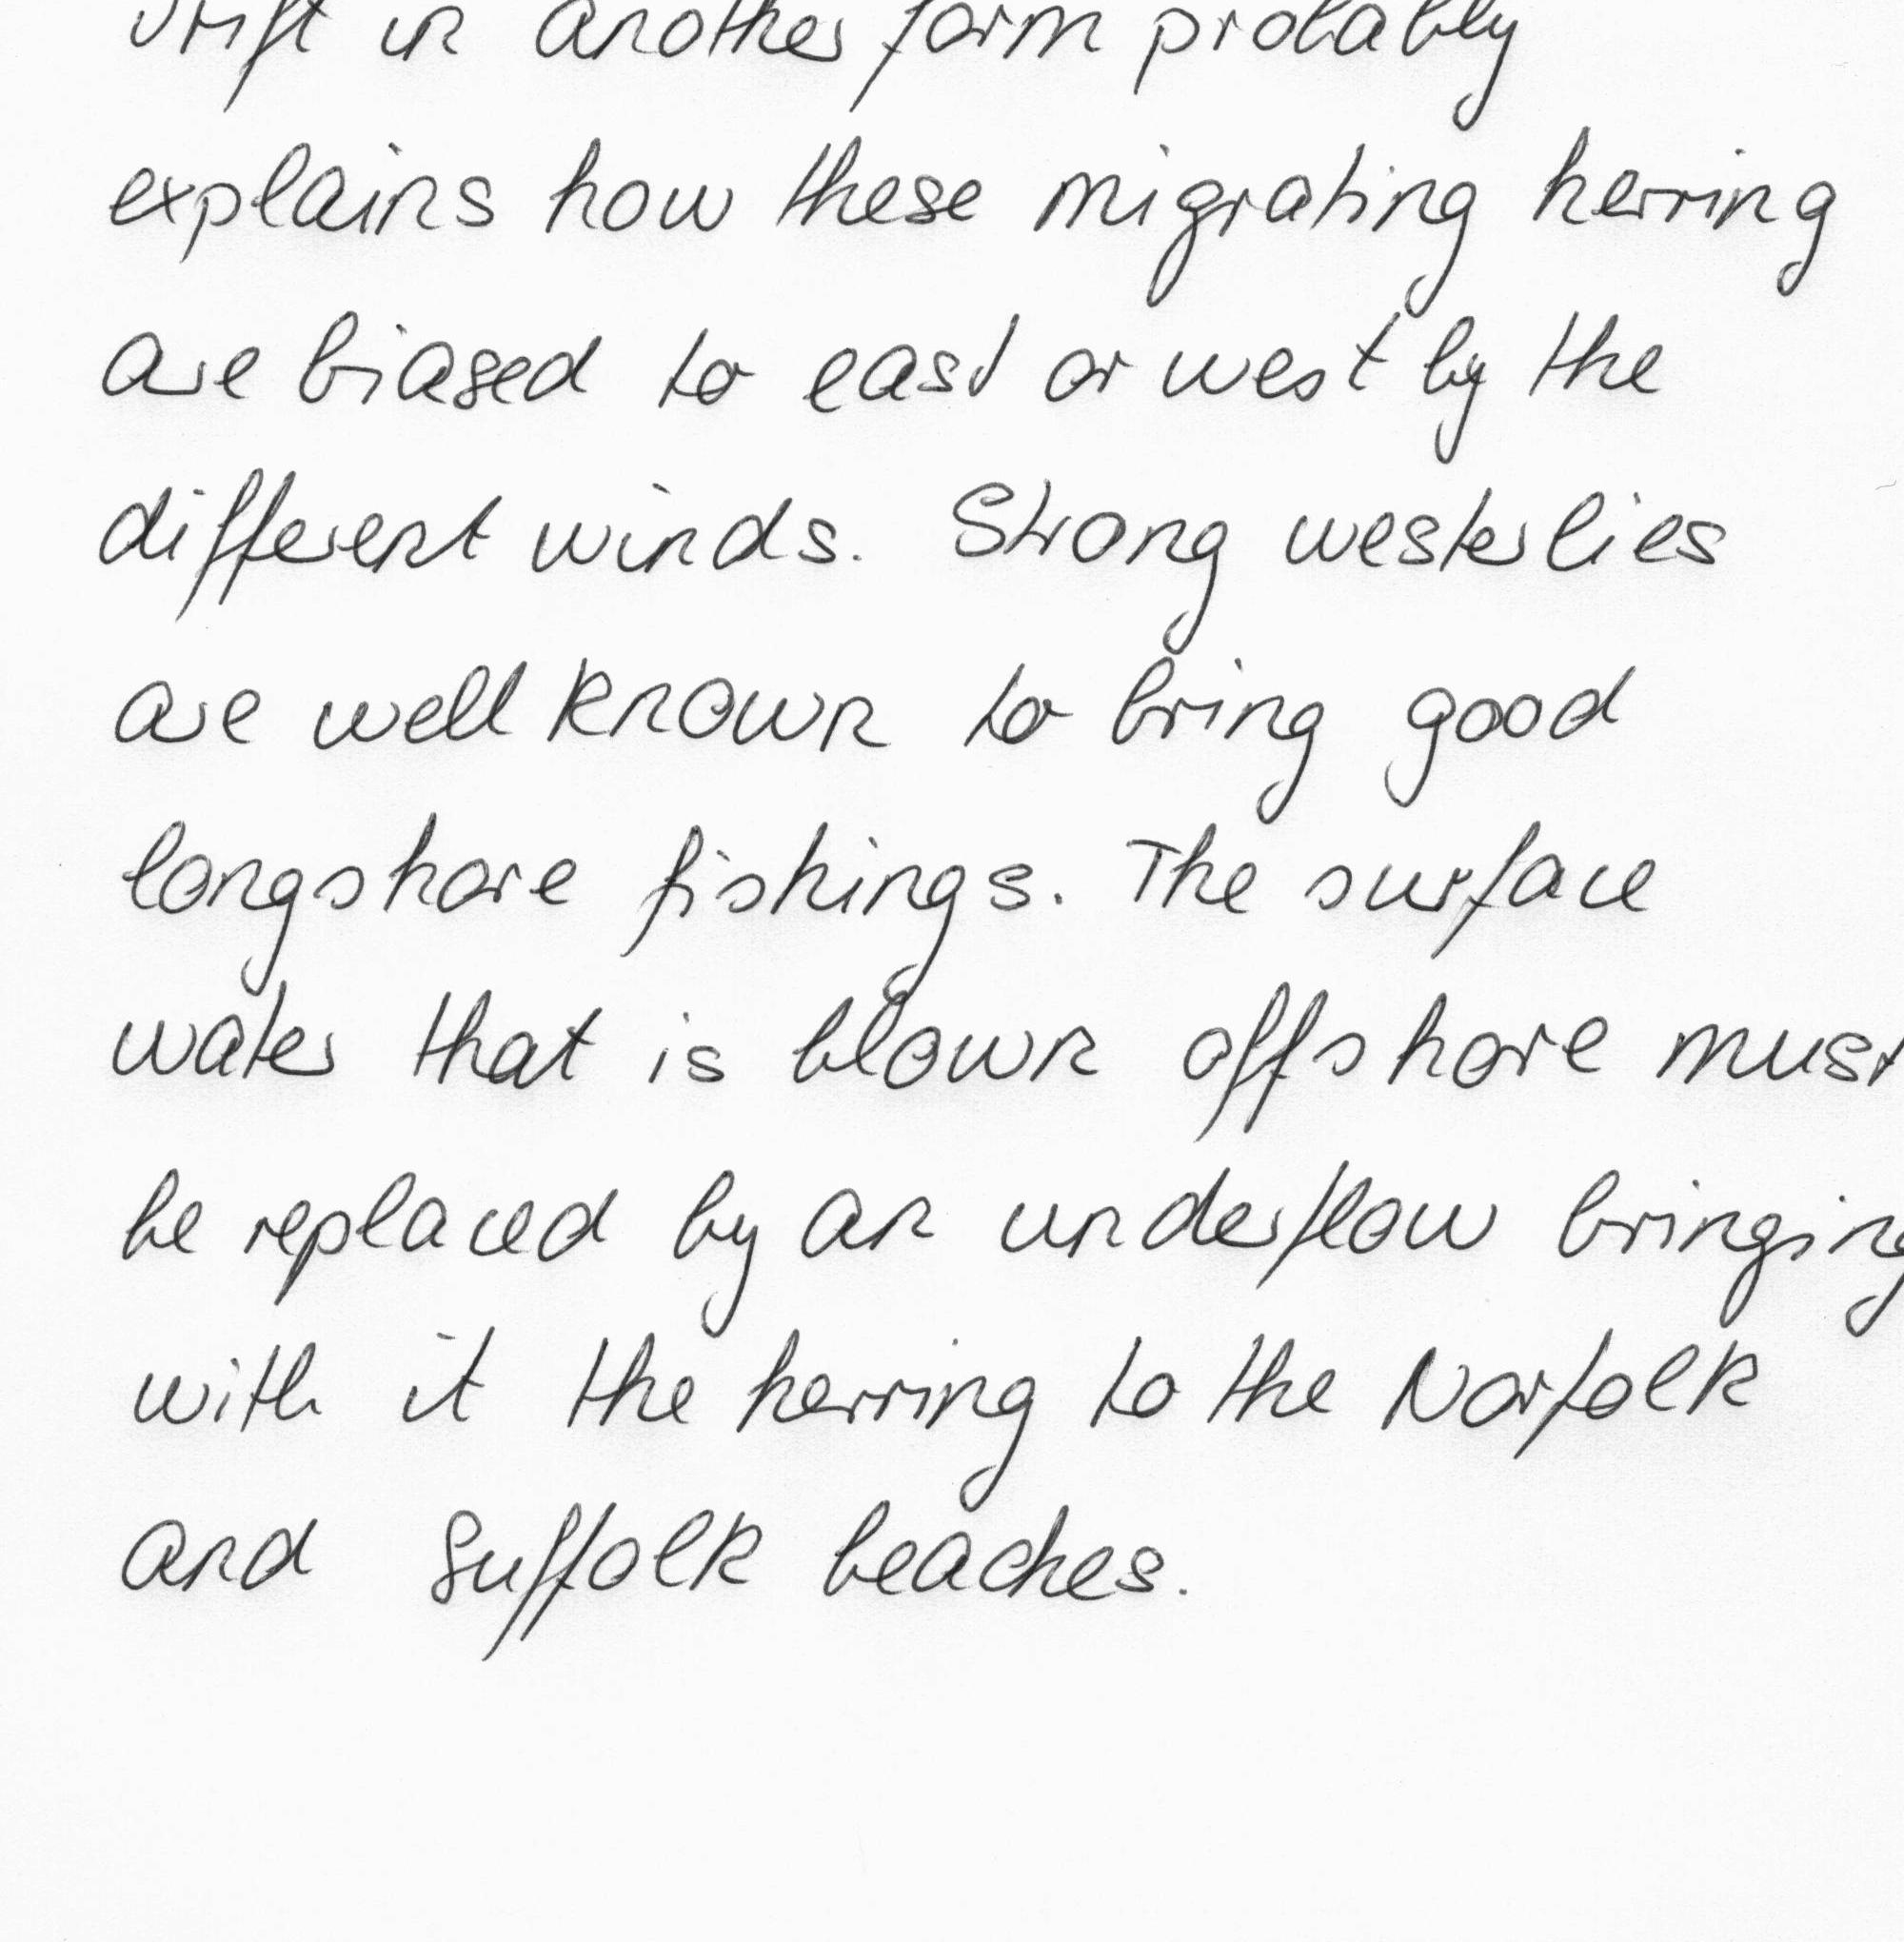 drift in another form probably
explains how these migrating herring
are biased to east or west by the
different winds. Strong westerlies
are well known to bring good
longshore fishings. The surface
water that is blown offshore must
be replaced by an underflow bringing
with it the herring to the Norfolk
and Suffolk beaches.